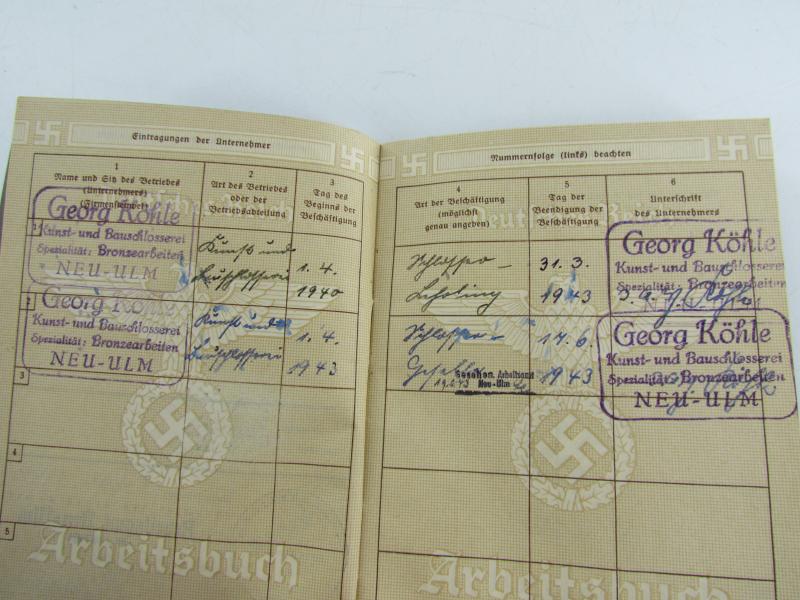 Eintragungen der Unternehmer
1
Name und Sitz des Betriebes
(Unternehmers)
(Firmenstempel)
2
Art des Betriebes
oder der
Betriebsabteilung
3
Tag des
Beginns der
Beschäftigung
1
Georg Köhle
Kunst- und Bauschlosserei
Spezialität: Bronzearbeiten
NEU-ULM
Kunst und
Bauschlosserei
1. 4.
1940
2
Georg Köhle
Kunst- und Bauschlosserei
Spezialität: Bronzearbeiten
NEU-ULM
Kunst und
Bauschlosserei
1. 4.
1943
3
4
5
Arbeitsbuch
Nummernfolge (links) beachten
4
Art der Beschäftigung
(möglichst
genau angeben)
5
Tag der
Beendigung der
Beschäftigung
6
Unterschrift
des Unternehmers
Schlosser-
Lehrling
31. 3.
1943
Georg Köhle
Kunst- und Bauschlosserei
Spezialität: Bronzearbeiten
NEU-ULM
Schlosser-
Geselle
Gesehen. Arbeitsamt
Neu-Ulm
14. 6.
1943
Georg Köhle
Kunst- und Bauschlosserei
Spezialität: Bronzearbeiten
NEU-ULM
Arbeitsbuch